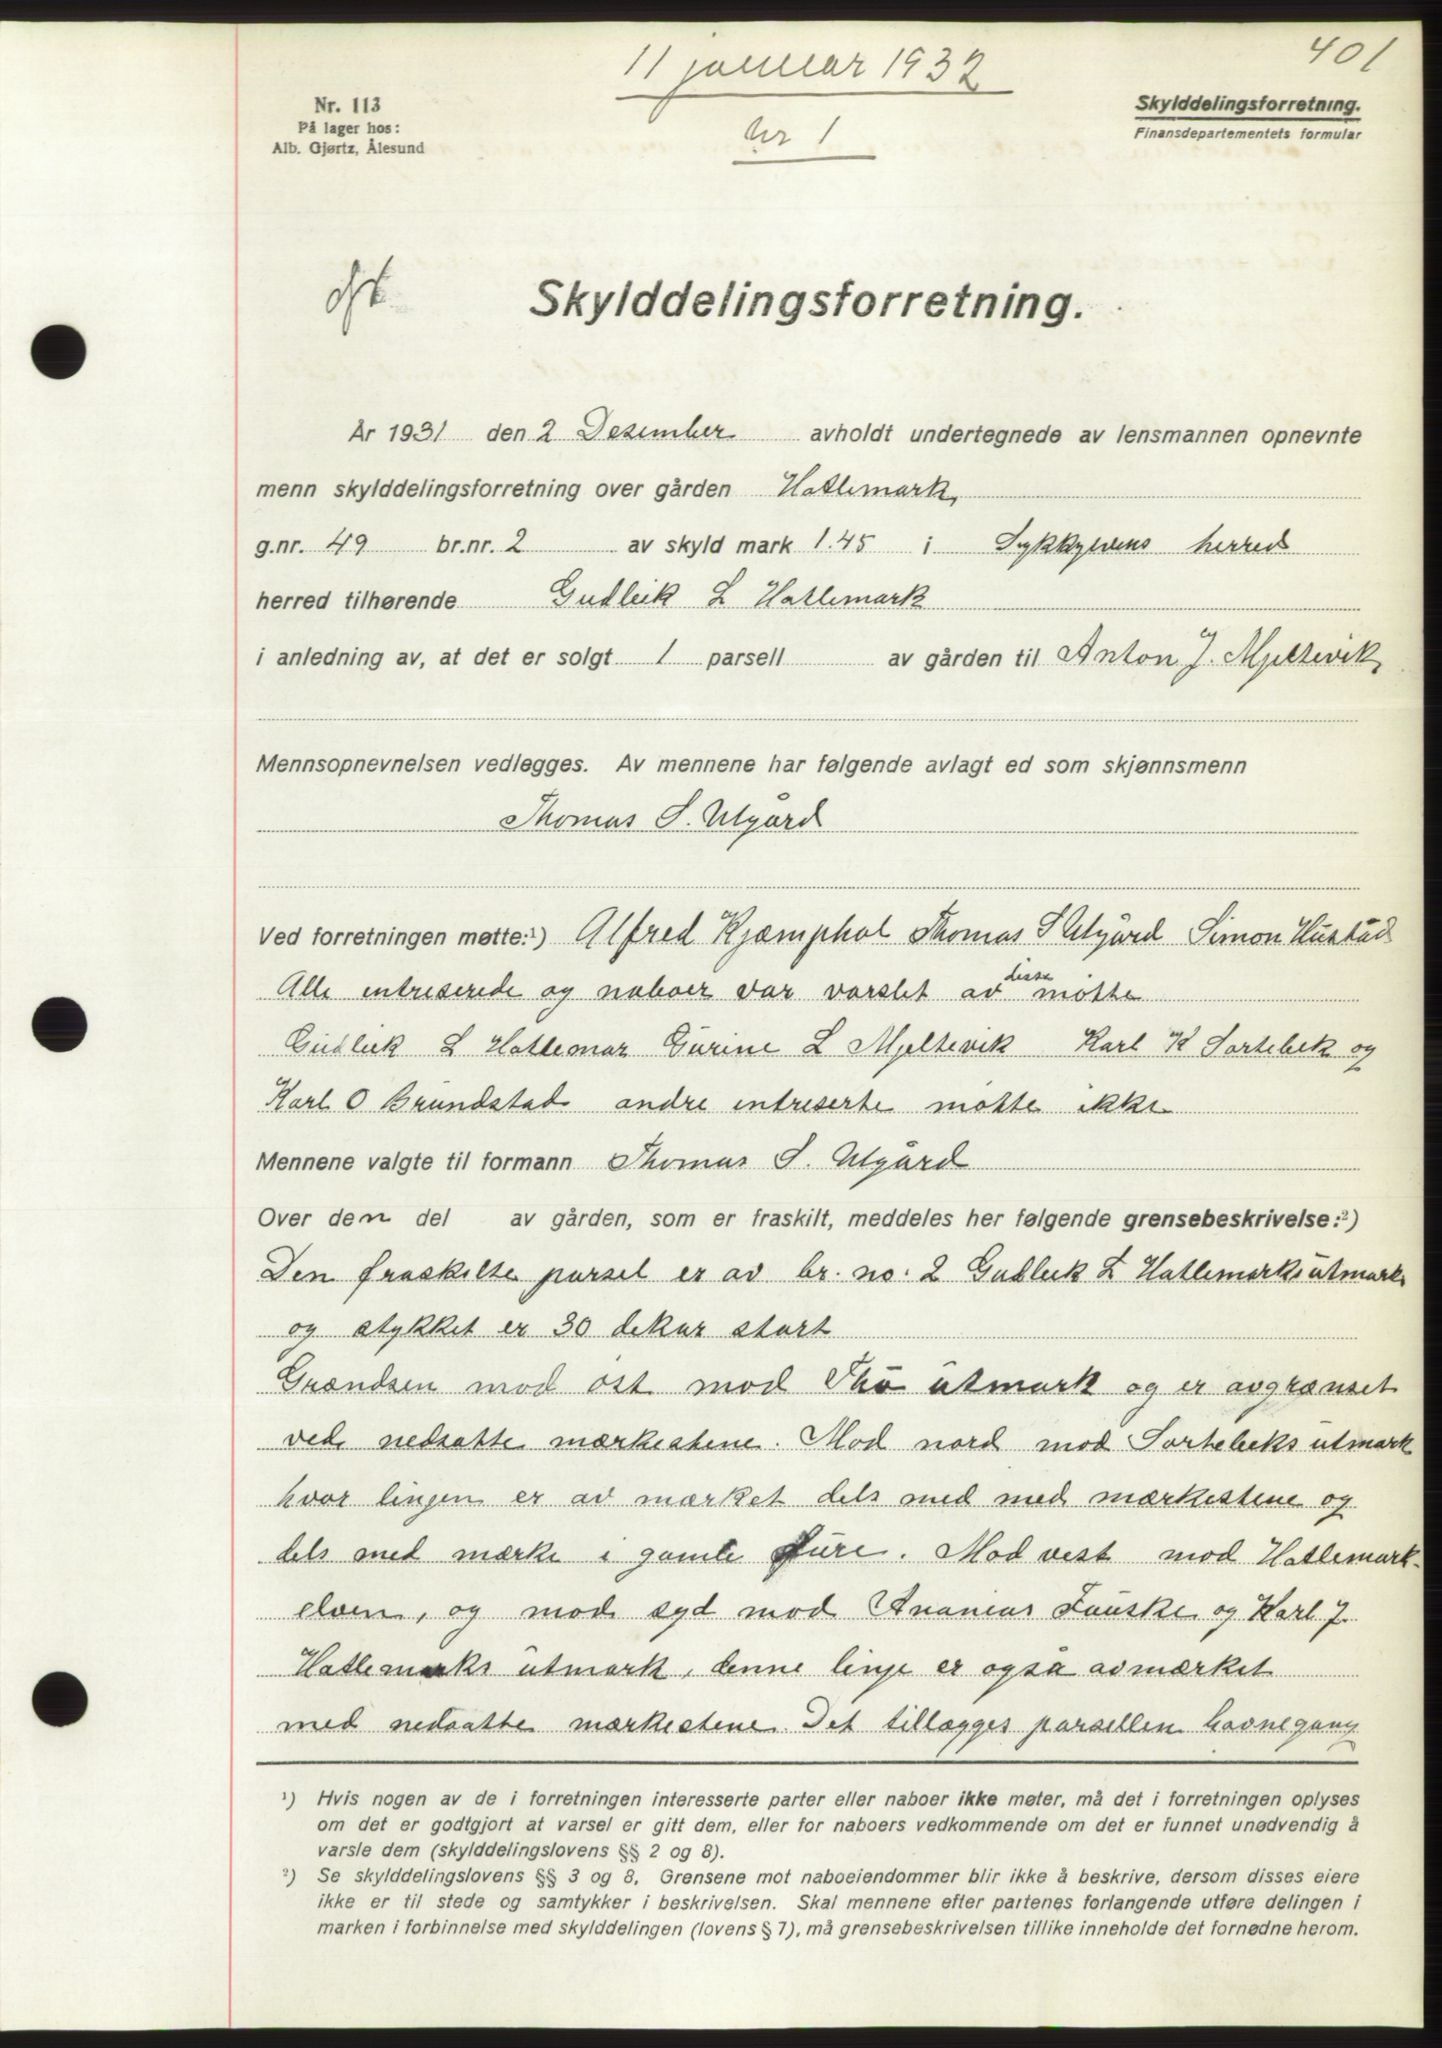 11 januar 1932
401
Nr. 113
På lager hos:
Alb. Gjørtz, Ålesund
Nr 1
Skylddelingsforretning.
Finansdepartementets formular
Skylddelingsforretning.
År 1931 den 2 Desember avholdt undertegnede av lensmannen opnevnte
menn skylddelingsforretning over gården Hatlemark,
g.nr. 49 br.nr. 2 av skyld mark 1.45 i Sykkylvens herred
herred tilhørende Gudleik L Hatlemark
i anledning av, at det er solgt 1 parsell av gården til Anton J. Mjeltevik,
Mennsopnevnelsen vedlegges. Av mennene har følgende avlagt ed som skjønnsmenn
Thomas S. Utgård
Ved forretningen møtte:¹) Alfred Kjæmphol Thomas S Utgård Simon Hustad
Alle entreserede og naboer var varslet av disse møtte
Gudleik L Hatlemar Gurine L Mjeltevik Karl K Sortebek og
Karl O Brundstad andre entreserte møtte ikke
Mennene valgte til formann Thomas S. Utgård
Over den del av gården, som er fraskilt, meddeles her følgende grensebeskrivelse:²)
Den fraskilte parsel er av br. no. 2 Gudleik L Hatlemarks utmark
og stykket er 30 dekar stort
Grændsen mod øst mod Thø utmark og er avgrænset
ved nedsatte mærkestene. Mod nord mod Sortebeks utmark
hvor lingen er av mærket dels med med mærkestene og
dels med mærke i gamle fure. Mod vest mod Hatlemark-
elven, og mod syd mod Ananias Fauske og Karl J.
Hatlemarks utmark, denne linje er også avmærket
med nedsatte mærkestene. Det tillægges parsellen havnegang
¹) Hvis nogen av de i forretningen interesserte parter eller naboer ikke møter, må det i forretningen oplyses
om det er godtgjort at varsel er gitt dem, eller for naboers vedkommende om det er funnet unødvendig å
varsle dem (skylddelingslovens §§ 2 og 8).
²) Se skylddelingslovens §§ 3 og 8. Grensene mot naboeiendommer blir ikke å beskrive, dersom disses eiere
ikke er til stede og samtykker i beskrivelsen. Skal mennene efter partenes forlangende utføre delingen i
marken i forbinnelse med skylddelingen (lovens § 7), må grensebeskrivelsen tillike inneholde det fornødne herom.